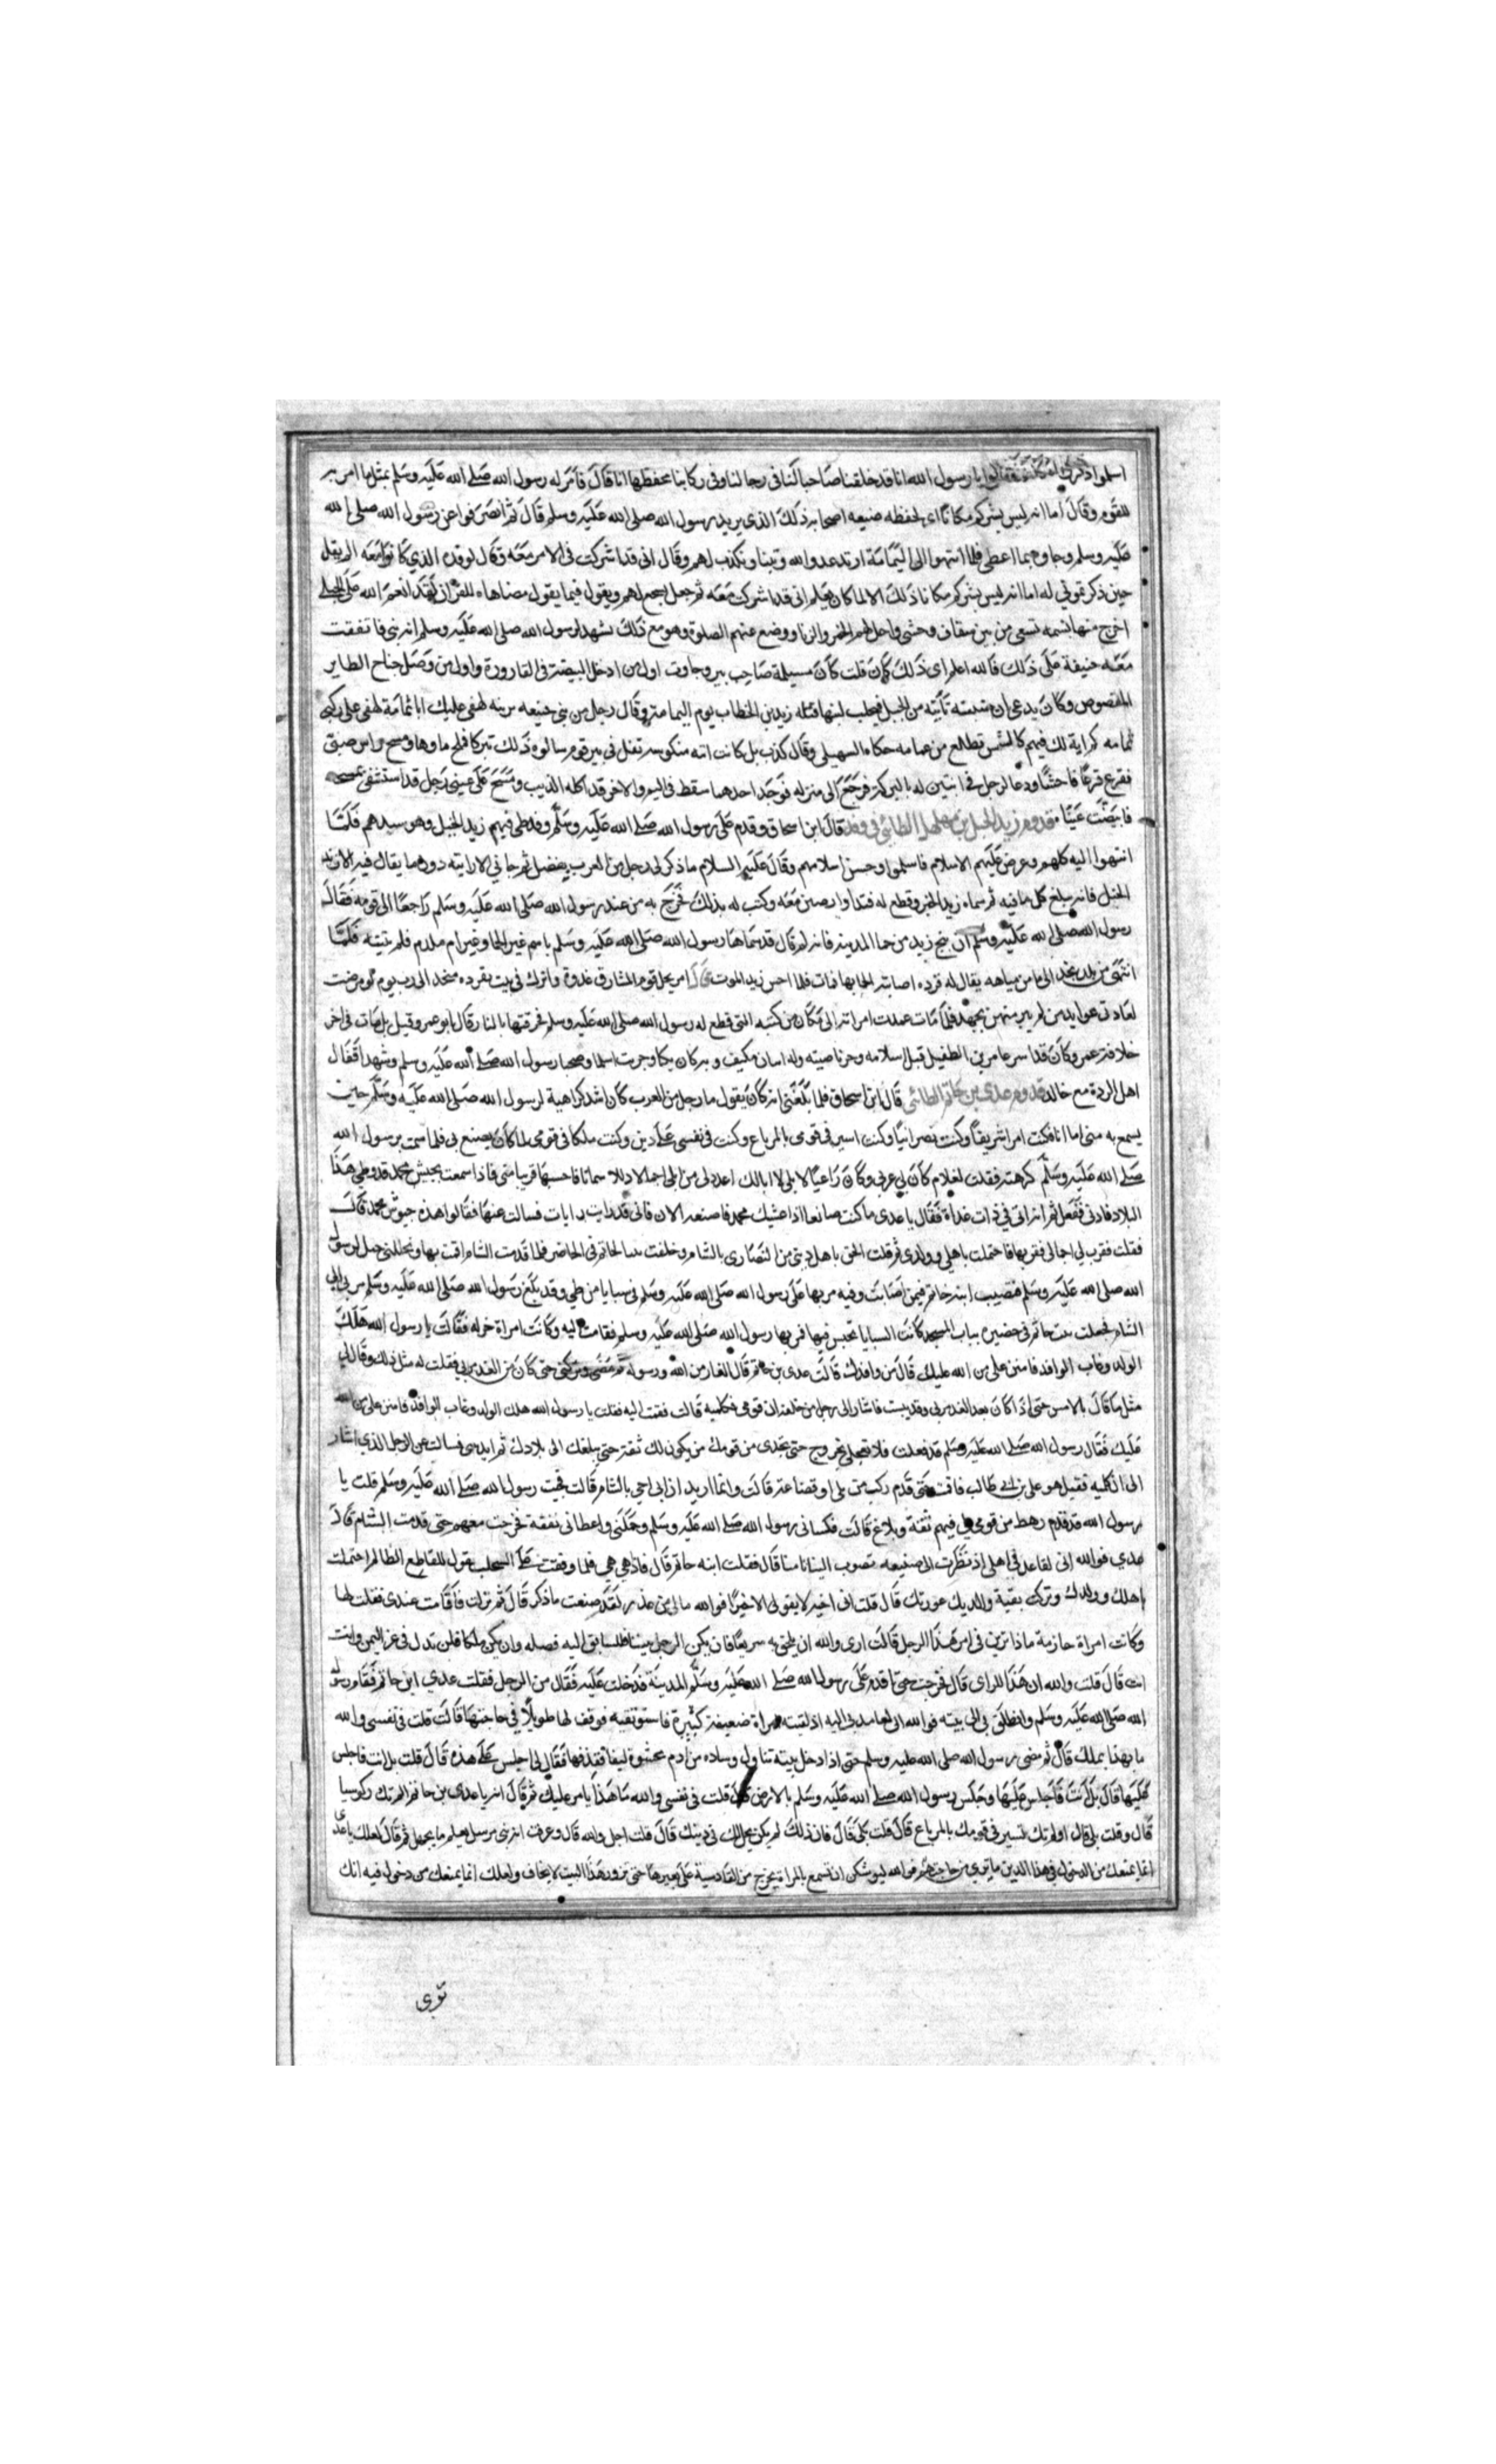 اسلموا ذكروا له مكانه فقالوا يا رسول الله انا قد خلفنا صاحبا لنا فى رحالنا وفى ركابنا يحفظها انا قال فامر له رسول الله صلى الله عليه وسلم بمثل ما امر به
للقوم وقال اما انه ليس بشركم مكانا اى لحفظه ضيعه اصحابه ذلك الذى يريد رسول الله صلى الله عليه وسلم قال ثم انصرفوا عن رسول الله صلى الله
عليه وسلم وجاوه بما اعطى فلما انتهوا الى اليمامة ارتد عدو الله وتنبا وتكذب لهم وقال انى قد اشركت فى الامر معه وقال لوفده الذى كانوا معه الم يقل
حين ذكرتمونى له اما انه ليس بشركم مكانا ذلك الا لما كان يعلم انى قد اشركت معه ثم جعل يسجع لهم ويقول فيما يقول مضاهاه للقرآن لقد انعم الله على الحبلى
اخرج منها نسمه تسعى من بين سفاف وحشى واحل لهم الخمر والزنا ووضع عنهم الصلوة وهو مع ذلك يشهد لرسول الله صلى الله عليه وسلم انه نبى فاتفقت
معه حنيفة على ذلك فالله اعلم اى ذلك كان قلت كان مسيلمة صاحب نيروجات اول من ادخل البيضة فى القارورة واول من وصل جناح الطاير
المقصوص وكان يدعى ان ظبية تأتيه من الجبل فيحلب لبنها قتله زيد بن الخطاب يوم اليمامة وقال رجل من بنى حنيفه يرثيه لهفى عليك ابا ثمامة لهفى على ركنى
ثمامه كم اية لك فيهم كالشمس تطلع من غمامه حكاه السهيلى وقال كذب بل كانت اياته منكوسه تفل فى بير قوم سالوه ذلك تبركا فملح ماوها ومسح راس صبى
فقرع قرعا فاحشا ودعا لرجل فى ابنين له بالبركة فرجع الى منزله فوجد احدهما سقط فى البير والاخر قد اكله الذيب ومسح على عينى رجل قد استشفى بمسحه
فابيضت عيناه قدوم زيد الخيل بن مهلهل الطائى فى وفد قال ابن اسحاق وقدم على رسول الله صلى الله عليه وسلم وفد طى فيهم زيد الخيل وهو سيدهم فلما
انتهوا اليه كلموه وعرض عليهم الاسلام فاسلموا وحسن اسلامهم وقال عليه السلام ما ذكر لى رجل من العرب بفضل ثم جانى الا رايته دون ما يقال فيه الا زيد
الخيل فانه يبلغ كل ما فيه ثم سماه زيد الخير وقطع له فيدا وارضين معه وكتب له بذلك فخرج به من عند رسول الله صلى الله عليه وسلم راجعا الى قومه فقال
رسول الله صلى الله عليه وسلم ان ينج زيد من حما المدينه فانه لم قال قد سماها رسول الله صلى الله عليه وسلم باسم غير الحما وغير ام ملدم فلم يثبته فلما
انتهى من بلد نجد الى ما من مياهه يقال له قرده اصابته الحما بها فمات فلما احس زيد الموت قال امرتحل قومى المشارق غدوة واترك فى بيت بفرده منجد الا رب يوم لو مرضت
لعادنى عوايد من لم يبر منهن يجهد فلما مات عمدت امراته الى ما كان من كتبه التى قطع له رسول الله صلى الله عليه وسلم فحرقتها بالنار قال ابو عمر وقيل بل مات فى اخر
خلافة عمر وكان قد اسر عامر بن الطفيل قبل اسلامه وجز ناصيته وله ابنان مكنف وبه كان يكنا وحريث اسلما وصحبا رسول الله صلى الله عليه وسلم وشهدا قتال
اهل الردة مع خالد قدوم عدى بن حاتم الطائى قال ابن اسحاق فلما بلغنى انه كان يقول ما رجل من العرب كان اشد كراهية لرسول الله صلى الله عليه وسلم حين
يسمع به منى اما انا فكنت امرا شريفا وكنت نصرانيا وكنت اسير فى قومى بالمرباع وكنت فى نفسى على دين وكنت ملكا فى قومى لما كان يصنع بى فلما سمعت برسول الله
صلى الله عليه وسلم كرهته فقلت لغلام كان لى عربى وكان راعيا لابلى لا ابالك اعدد لى من ابلى اجمالا ذللا سمانا فاحبسها قريبا منى فاذا سمعت بجيش محمد قد وطى هذا
البلاد فاذنى ففعل ثم انه اتانى فى ذات غداة فقال يا عدى ما كنت صانعا اذا غشيك محمد فاصنعه الان فانى قد رايت رايات فسالت عنها فقالوا هذه جيوش محمد قال
فقلت فقرب لى اجمالى فقربها فاحتملت باهلى وولدى ثم قلت الحق باهل دينى من النصارى بالشام وخلفت بنتا لحاتم فى الحاضر فلما قدمت الشام اقمت بها وتخالفنى خيل لرسول
الله صلى الله عليه وسلم فتصيب ابنة حاتم فيمن اصابت وقدم بها على رسول الله صلى الله عليه وسلم فى سبايا من طى وقد بلغ رسول الله صلى الله عليه وسلم هربى الى
الشام فجعلت بنت حاتم فى حضيرة بباب المسجد كانت السبايا تحبس فيها فمر بها رسول الله صلى الله عليه وسلم فقامت اليه وكانت امراة جزله فقالت يا رسول الله هلك
الوالد وغاب الوافد فامنن على من الله عليك قال من وافدك قالت عدى بن حاتم قال الفار من الله ورسوله ثم مضى وتركنى حتى كان من الغد مر بى فقلت له مثل ذلك وقال لى
مثل ما قال بالامس حتى اذا كان بعد الغد مر بى وقد يئست فاشار الى رجل من خلفه ان قومى فكلميه قالت فقمت اليه فقلت يا رسول الله هلك الوالد وغاب الوافد فامنن على من الله
عليك فقال رسول الله صلى الله عليه وسلم قد فعلت فلا تعجلى بخروج حتى تجدى من قومك من يكون لك ثقة حتى يبلغك الى بلادك ثم اذنينى فسالت عن الرجل الذى اشار
الى ان كلميه فقيل هو على بن ابى طالب فاقمت حتى قدم ركب من بلى او قضاعة قالت وانما اريد ان اتى اخى بالشام قالت فجيت رسول الله صلى الله عليه وسلم قلت يا
رسول الله قد قدم رهط من قومى لى فيهم ثقة وبلاغ قالت فكسانى رسول الله صلى الله عليه وسلم وحملنى واعطانى نفقة فخرجت معهم حتى قدمت الشام قال
عدى فوالله انى لقاعد فى اهلى اذ نظرت الى ضعينه تصوب الينا تامنا قال فقلت ابنه حاتم قال فاذا هى هى فلما وقفت على انسحلت تقول القاطع الظالم احتملت
باهلك وولدك وتركت بقية والديك عورتك قال قلت اى اخيه لا تقولى الا خيرا فوالله مالى من عذر لقد صنعت ما ذكرت قال ثم نزلت فاقامت عندى فقلت لها
وكانت امراة حازمة ماذا ترين فى امر هذا الرجل قالت ارى والله ان تلحق به سريعا فان يكن الرجل نبيا فللسابق اليه فضله وان يكن ملكا فلن تذل فى عز اليمن وانت
انت قال قلت والله ان هذا للراى قال فخرجت حتى اقدم على رسول الله صلى الله عليه وسلم المدينة فدخلت عليه فقال من الرجل فقلت عدى ابن حاتم فقام رسول
الله صلى الله عليه وسلم وانطلق بى الى بيته فوالله انه لعامد بى اليه اذ لقيته امراة ضعيفة كبيرة فاستوقفته فوقف لها طويلا فى حاجتها قالت قلت فى نفسى والله
ما بهذا بملك قال ثم مضى رسول الله صلى الله عليه وسلم حتى اذا دخل بيته تناول وساده من ادم محشوة ليفا فقذفها فقال لى اجلس على هذه قال قلت بل انت فاجلس
عليها قال بل انت فاجلس عليها وجلس رسول الله صلى الله عليه وسلم بالارض قال قلت فى نفسى والله ما هذا يامر مليك ثم قال انه يا عدى بن حاتم الم تك ركوسيا
قال وقلت بلى قال اولم تك تسير فى قومك بالمرباع قال قلت بلى قال فان ذلك لم يكن يحل لك فى دينك قال قلت اجل والله قال وعرفت انه نبى مرسل يعلم ما يجهل ثم قال لعلك يا عدى
انما يمنعك من الدخول فى هذا الدين ما ترى من حاجتهم فوالله ليوشكن ان تسمع بالمراة تخرج من القادسية على بعيرها حتى تزور هذا البيت لا تخاف ولعلك انما يمنعك من دخول فيه انك
ترى